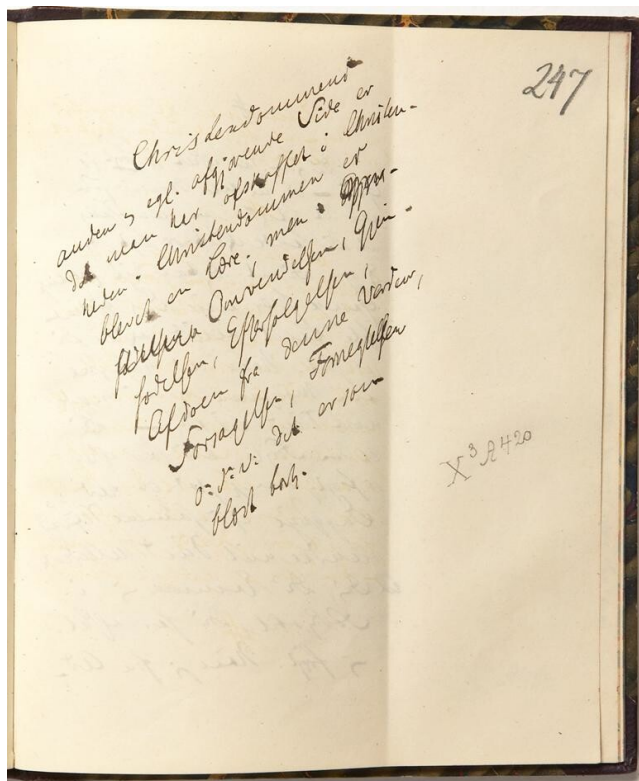 247
Christendommens
anden og egl. afgjørende Side er
det man har afskaffet i Christen-
heden. Christendommen er
blevet en Lære; men
Omvendelsen, Gjen-
fødelsen, Efterfølgelsen,
Afdøen fra denne Verden,
Forsagelsen, Fornegtelsen
o: s: v: det er som
blæst bort.
X³ A 420